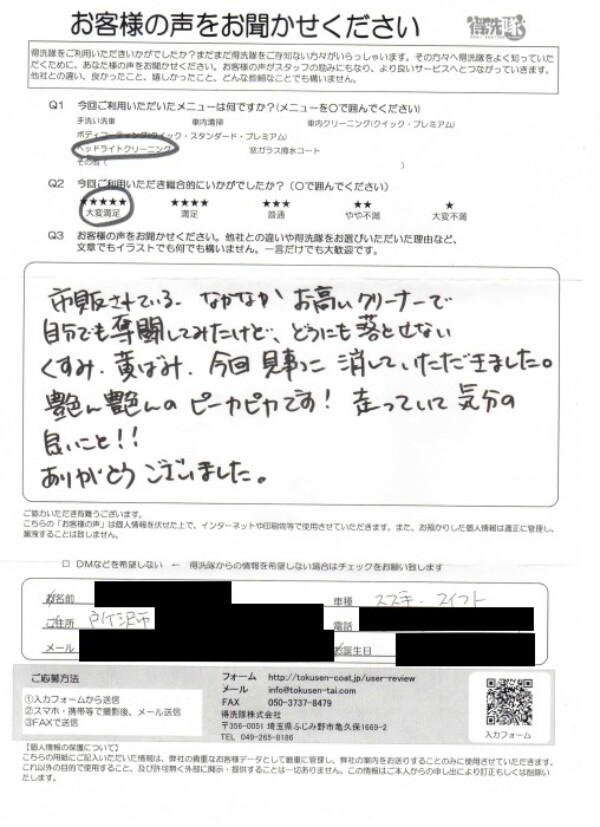 お客様の声をお聞かせください
得洗隊
得洗隊をご利用いただきいかがでしたか?まだまだ得洗隊をご存知ない方々がいらっしゃいます。その方々へ得洗隊をよく知っていた
だくために、あなた様の声をお聞かせください。お客様の声がスタッフの励みにもなり、より良いサービスへとつながっていきます。
他社との違い、良かったこと、嬉しかったこと、どんな些細なことでも構いません。
Q1 今回ご利用いただいたメニューは何ですか?(メニューを○で囲んでください)
手洗い洗車 車内清掃 車内クリーニング(クイック・プレミアム)
ボディコーティング(クイック・スタンダード・プレミアム)
ヘッドライトクリーニング 窓ガラス撥水コート
その他( )
Q2 今回ご利用いただき総合的にいかがでしたか?(○で囲んでください)
★★★★★ ★★★★ ★★★ ★★ ★
大変満足 満足 普通 やや不満 大変不満
Q3 お客様の声をお聞かせください。他社との違いや得洗隊をお選びいただいた理由など、
文章でもイラストでも何でも構いません。一言だけでも大歓迎です。
市販されている、なかなかお高いクリーナーで
自分でも奮闘してみたけど、どうにも落とせない
くすみ、黄ばみ、今回見事に消していただきました。
艶ん艶んのピーカピカです!走っていて気分の
良いこと!!
ありがとうございました。
ご協力いただき有難うございます。
こちらの「お客様の声」は個人情報を伏せた上で、インターネットや印刷物等で使用させていただきます。また、お預かりした個人情報は適正に管理し、
漏洩することは致しません。
□ DMなどを希望しない ← 得洗隊からの情報を希望しない場合はチェックをお願い致します
お名前 車種 スズキ・スイフト
ご住所 所沢市 電話
メール お誕生日
ご応募方法
①入力フォームから送信
②スマホ・携帯等で撮影後、メール送信
③FAXで送信
フォーム http://tokusen-coat.jp/user-review
メール info@tokusen-tai.com
FAX 050-3737-8479
得洗隊株式会社
〒356-0051 埼玉県ふじみ野市亀久保1669-2
TEL 049-265-8186
入力フォーム
【個人情報の保護について】
こちらの用紙にご記入いただいた情報は、弊社の貴重なお客様データとして厳重に管理し、弊社の案内をお送りすることのみに使用させていただきます。
これ以外の目的で使用すること、及び許可無く外部に開示・提供することは一切ありません。この情報はご本人からの申し出により訂正もしくは削除い
たします。